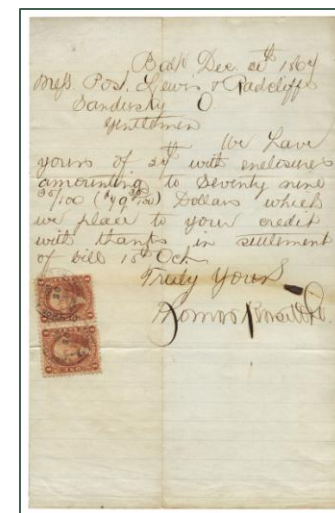 Dec. 1867
Mess. Post, Lewis & Radcliffe
Sandusky O
Gentlemen
We have
yours of with enclosures
amounting to Seventy nine
30/100 ($79 30/100) Dollars which
we place to your credit
with thanks in settlement
of bill 15th Oct
Truly Yours
Thomas